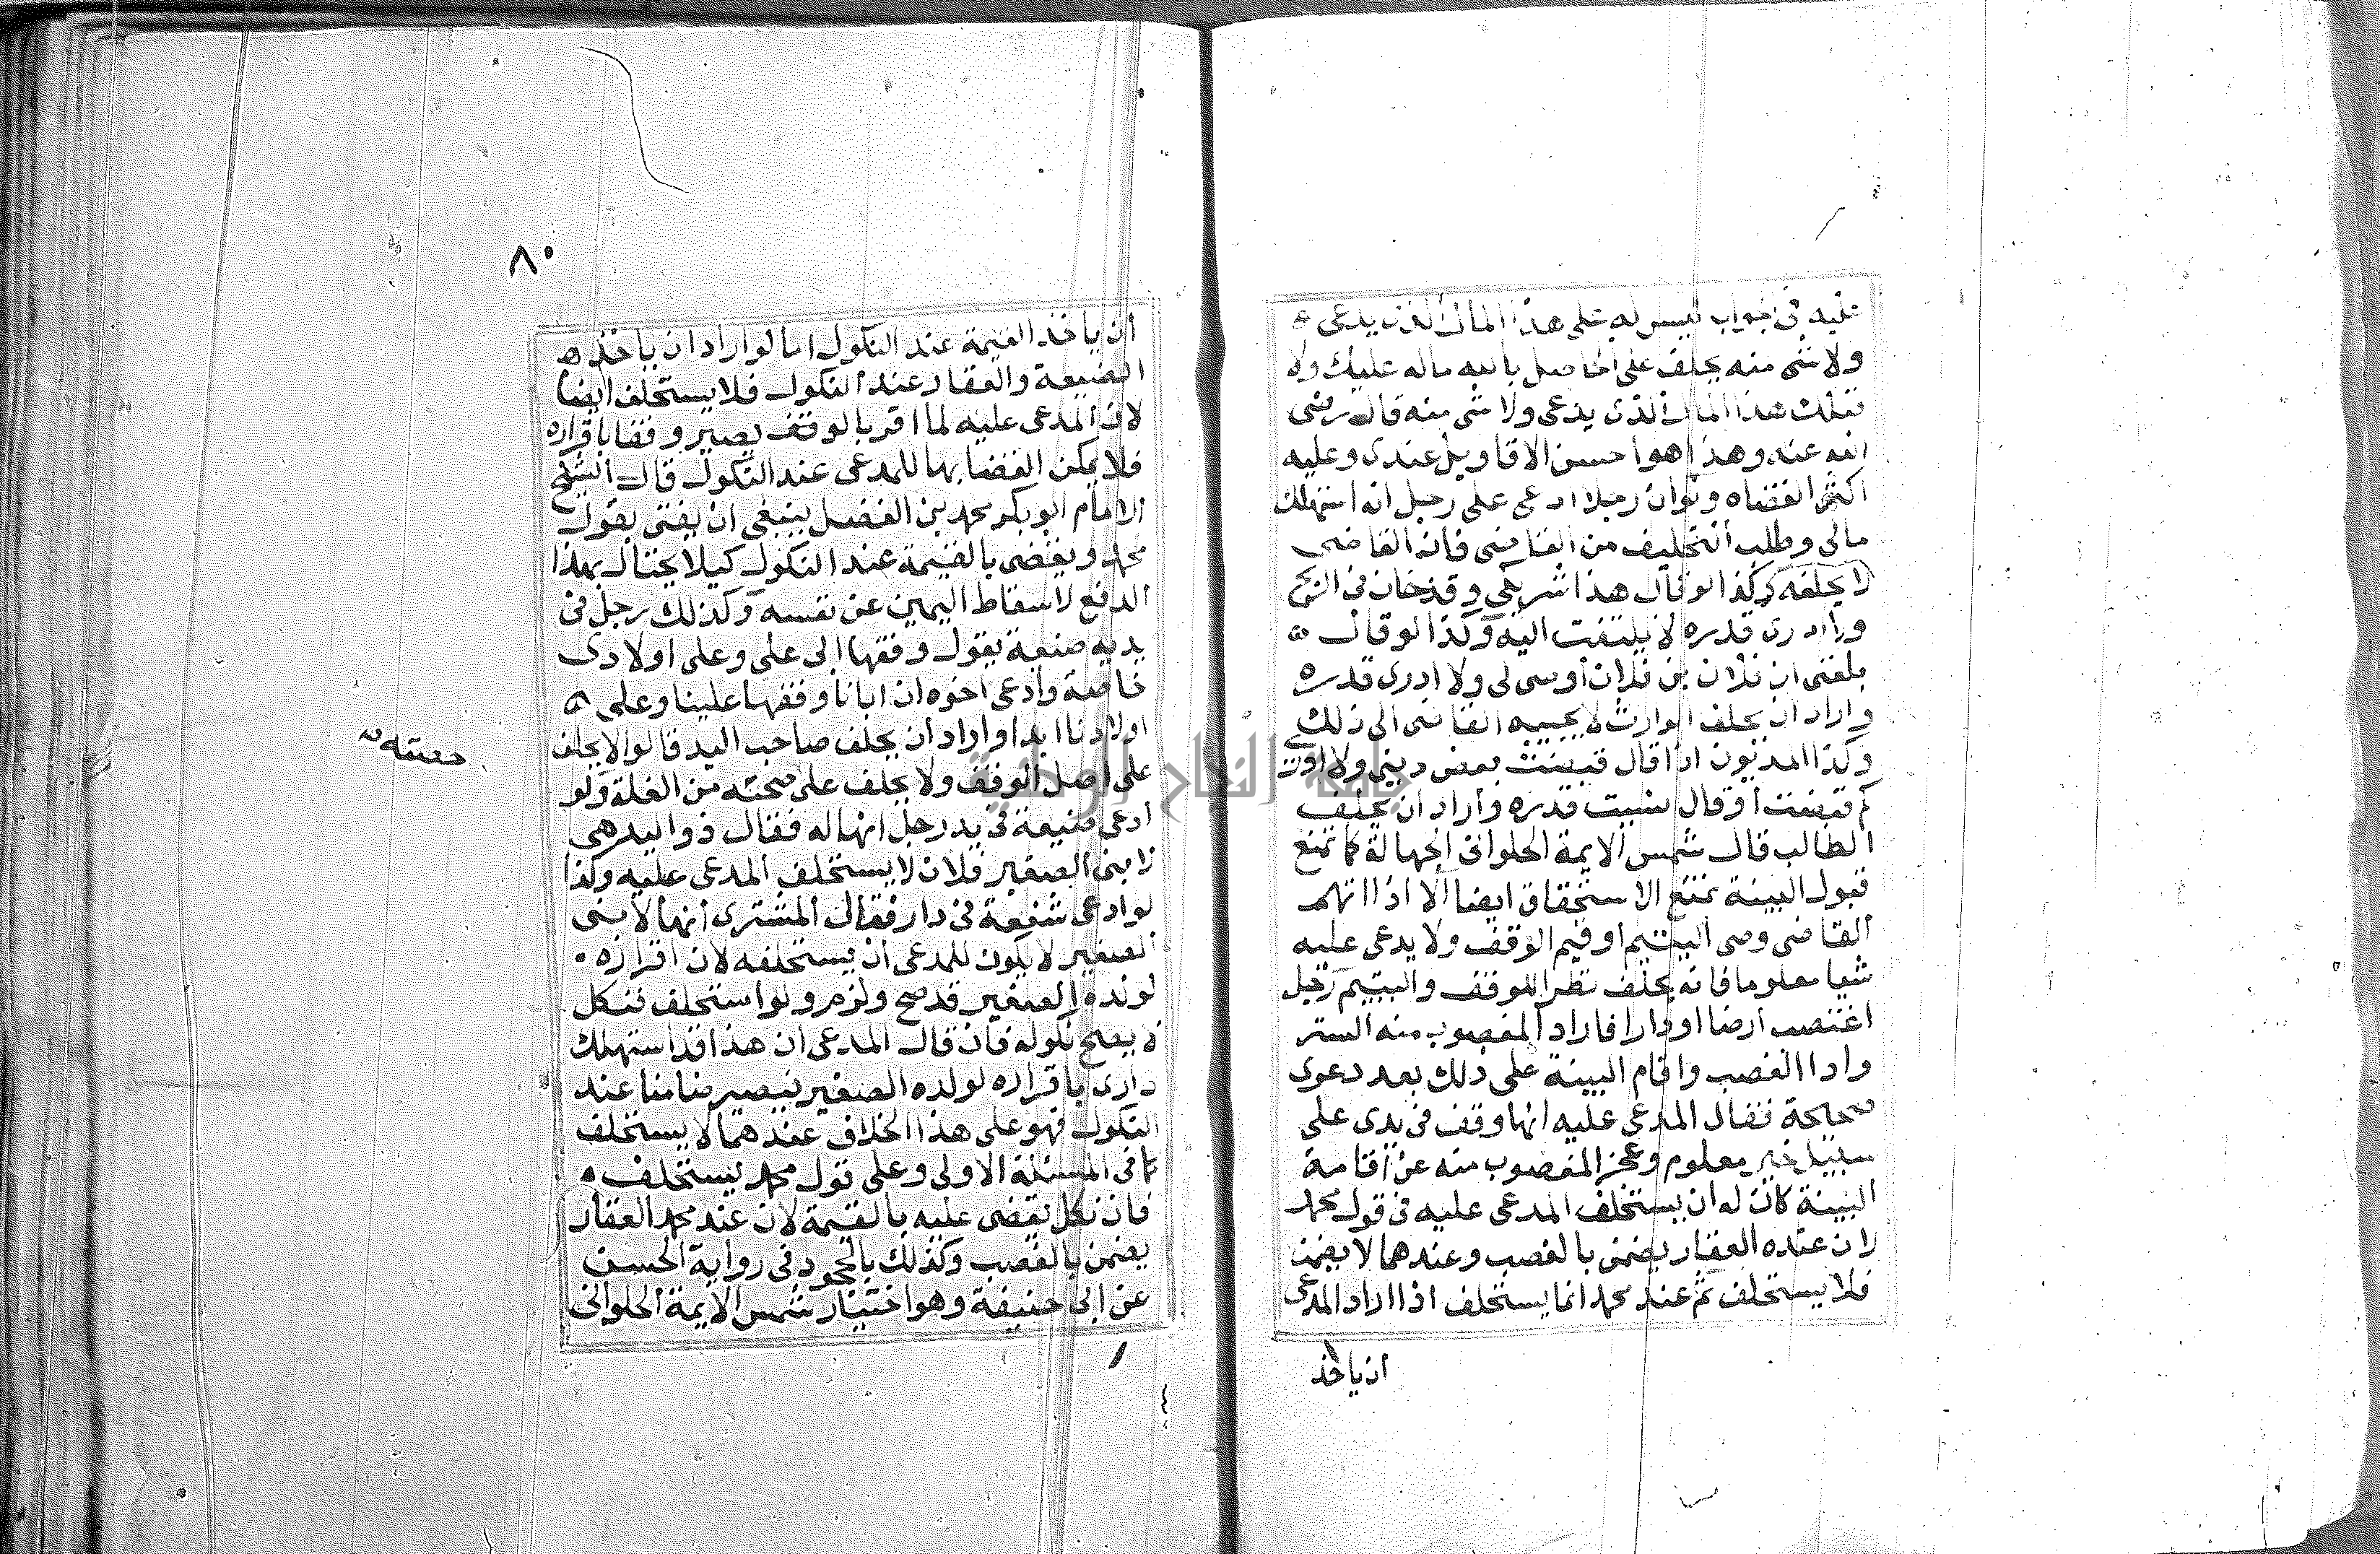 عليه في جواب ليس له على هذا المال الذي يدعى
ولا شى منه يحلف على الحاصل بالله ماله عليك ولا
قبلك هذا المال الذى يدعى ولا شى منه قال رضى
الله عنه وهذا هو احسن الاقاويل عندى وعليه
اكثر القضاه ولو ان رجلا ادعى على رجل انه استهلك
مالى وطلب التحليف من القاضى فان القاضى
لا يحلفه وكذا لو قال هذا شريكى وقد خان فى الربح
ولا ادرى قدره لا يلتفت اليه وكذا لو قال
بلغنى ان فلان بن فلان أوسى لى ولا ادرى قدره
واراد ان يحلف الوارث لا يجيبه القاضى الى ذلك
وكذا المديون اذا قال قبضت بعض دينى ولا ادرى
كم قبضت أو قال نسيت قدره وأراد ان يحلف
الطالب قال شمس الايمة الحلوانى الجهالة كما تمنع
قبول البينة تمنع الاستحقاق ايضا الا اذا اتهم
القاضى وصى اليتيم أو قيم الوقف ولا يدعى عليه
شيا معلوما فانه يحلف نظرا للوقف واليتيم رجل
اغتصب أرضا او دارا فاراد المغصوب منه الستر
وادا الغصب واقام البينة على ذلك بعد دعوى
صحيحة فقال المدعى عليه انها وقف فى يدى على
سبيل خير معلوم وعجز المغصوب منه عن أقامة
البينة كان له ان يستحلف المدعى عليه فى قول محمد
لان عنده العقار يضمن بالغصب وعندهما لا يضمن
فلا يستحلف ثم عند محمد انما يستحلف اذا اراد المدعى
ان ياخذ
٨٠
أن ياخذ القيمة عند النكول اما لو اراد ان ياخذ
الضيعة والعقار عند النكول فلا يستحلف ايضا
لان المدعى عليه لما اقر بالوقف يصير وقفا باقراره
فلا يمكن القضا بها للمدعى عند النكول قال الشيخ
الامام ابو بكر محمد بن الفضل ينبغى ان يفتى بقول
محمد ويقضى بالقيمة عند النكول كيلا يحتال بهذا
الدفع لاسقاط اليمين عن نفسه وكذلك رجل فى
يديه ضيعة يقول وقفها ابى على وعلى اولادى
خاصة وادعى اخوه ان ابانا وقفها علينا وعلى
اولادنا ابدا واراد أن يحلف صاحب اليد قالوا لا يحلف
على اصل الوقف ولا يحلف على صحته من الغلة ولو
حصته
ادعى ضيعة فى يد رجل انها له فقال ذو اليد هى
لابنى الصغير فلان لا يستحلف المدعى عليه وكذا
لو ادعى شفعة فى دار فقال المشترى أنها لابنى
الصغير لا يكون للمدعى أن يستحلفه لان اقراره
لولده الصغير قد صح ولزم ولو استحلف فنكل
لا يصح نكوله فان قال المدعى ان هذا قد استهلك
دارى باقراره لولده الصغير فيصير ضامنا عند
النكول فهو على هذا الخلاف عندهما لا يستحلف
كما فى المسئلة الاولى وعلى قول محمد يستحلف
فان نكل يقضى عليه بالقيمة لان عند محمد العقار
يضمن بالغصب وكذلك بالجحود فى رواية الحسن
عن ابى حنيفة وهو اختيار شمس الايمة الحلوانى